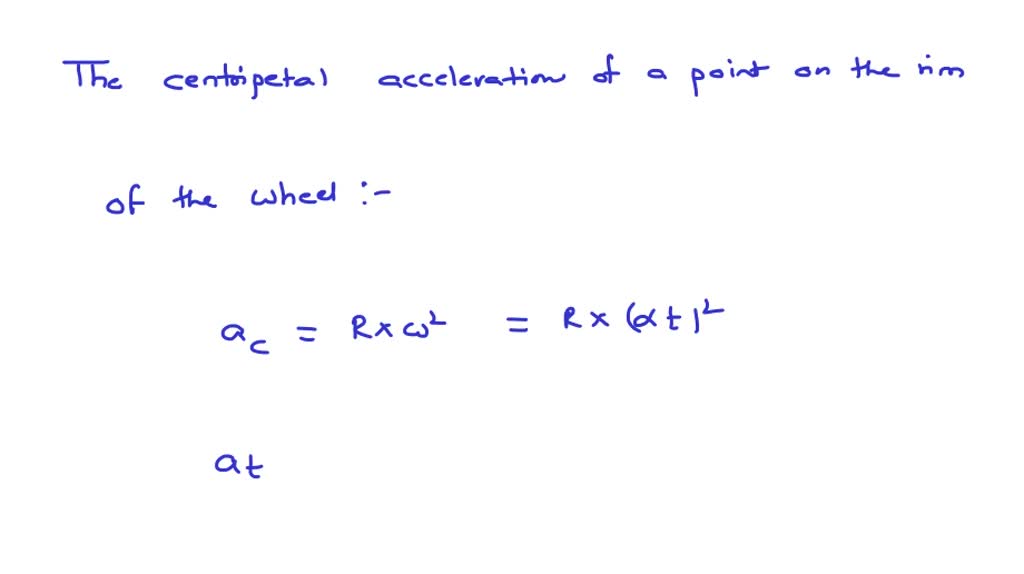 The centripetal acceleration of a point on the rim
of the wheel :-
a_c = R × ω² = R × (αt)²
at